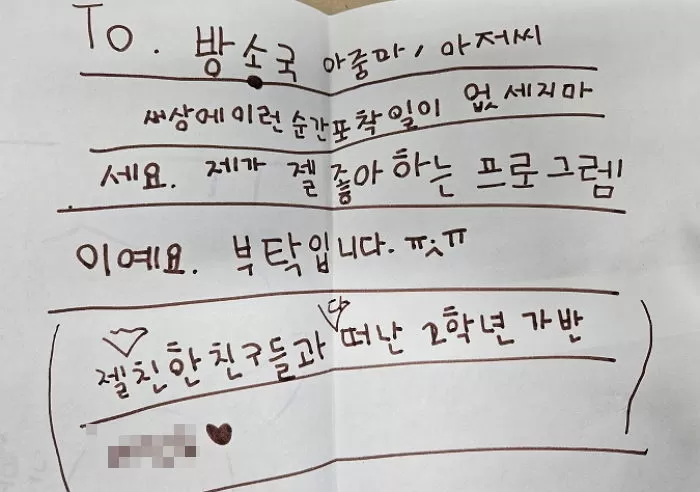 To. 방소국 아줌마, 아저씨
세상에이런 순간포착일이 없세지마
세요. 제가 젤 좋아하는 프로그렘
이예요. 부탁입니다. ㅠㅊㅠ
젤친한친구들과 다 떠난 2학년 가반